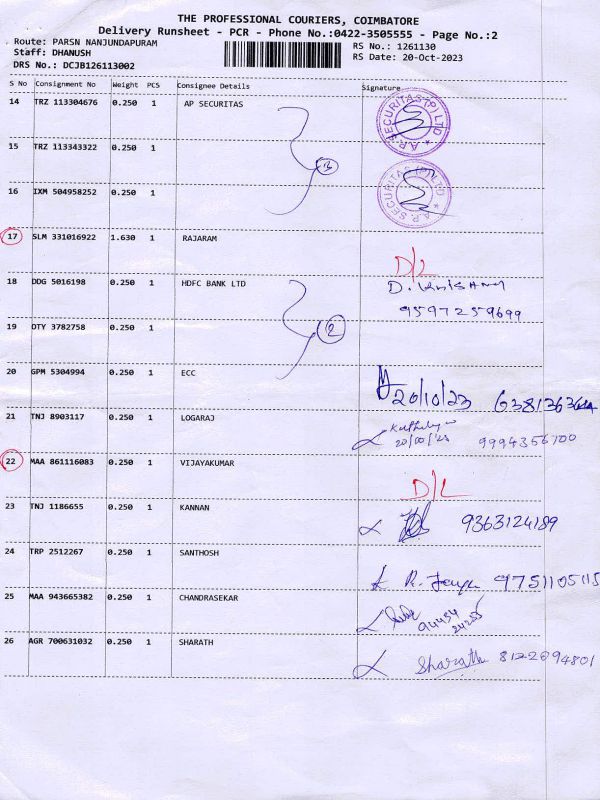 THE PROFESSIONAL COURIERS, COIMBATORE
Delivery Runsheet - PCR - Phone No.:0422-3505555 - Page No.:2
Route: PARSN NANJUNDAPURAM RS No.: 1261130
Staff: DHANUSH RS Date: 20-Oct-2023
DRS No.: DCJB126113002
S No Consignment No Weight PCS Consignee Details Signature
14 TRZ 113304676 0.250 1 AP SECURITAS
A.P. SECURITAS (P) LTD
15 TRZ 113343322 0.250 1
3
16 IXM 504958252 0.250 1
A.P. SECURITAS (P) LTD
17 SLM 331016922 1.630 1 RAJARAM
D/L
18 DDG 5016198 0.250 1 HDFC BANK LTD D. Krishna
9597259699
19 OTY 3782758 0.250 1
2
20 GPM 5304994 0.250 1 ECC
20/10/23
21 TNJ 8903117 0.250 1 LOGARAJ
9994356700
22 MAA 861116083 0.250 1 VIJAYAKUMAR
D/L
23 TNJ 1186655 0.250 1 KANNAN
9363124189
24 TRP 2512267 0.250 1 SANTHOSH
9751105115
25 MAA 943665382 0.250 1 CHANDRASEKAR
94454
24265
26 AGR 700631032 0.250 1 SHARATH
Sharath 8122094801